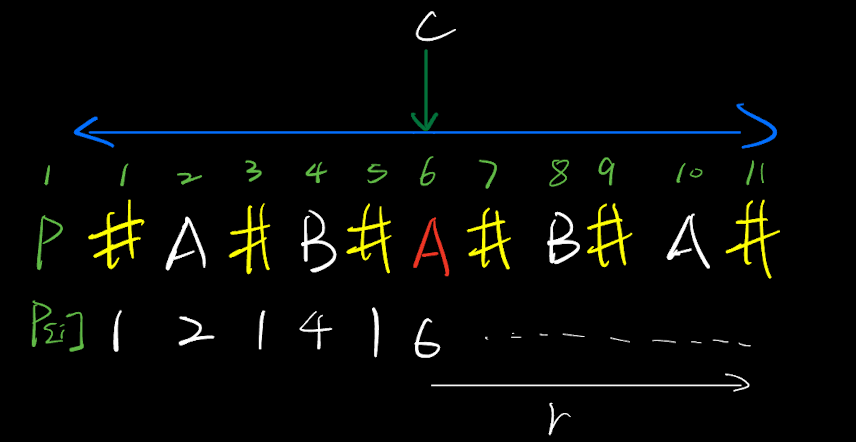 C
1 1 2 3 4 5 6 7 8 9 10 11
P # A # B # A # B # A #
P[i] 1 2 1 4 1 6 ..------
r